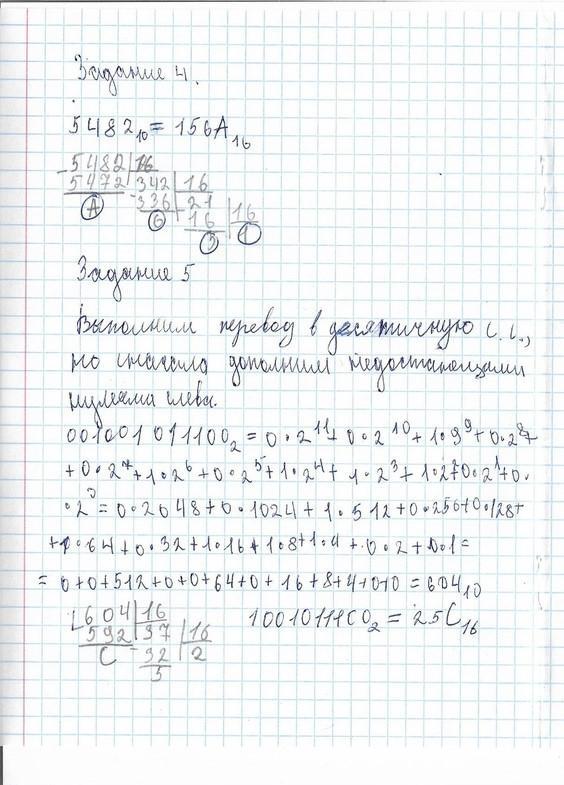 Задание 4.
5482₁₀ = 156A₁₆
5482 16
5472 342 16
A 336 21 16
6 16 1
5
Задание 5
Выполним перевод в десятичную с.с.,
но сначала дополним недостающими
нулями слева.
001001011100₂ = 0·2¹¹+0·2¹⁰+1·2⁹+0·2⁸+
+0·2⁷+1·2⁶+0·2⁵+1·2⁴+1·2³+1·2²0·2¹+0·
·2⁰=0·2048+0·1024+1·512+0·256+0·128+
+1·64+0·32+1·16+1·8+1·4+0·2+0·1=
=0+0+512+0+0+64+0+16+8+4+0+0=604₁₀
604 16 1001011100₂ = 25C₁₆
592 37 16
C 32 2
5